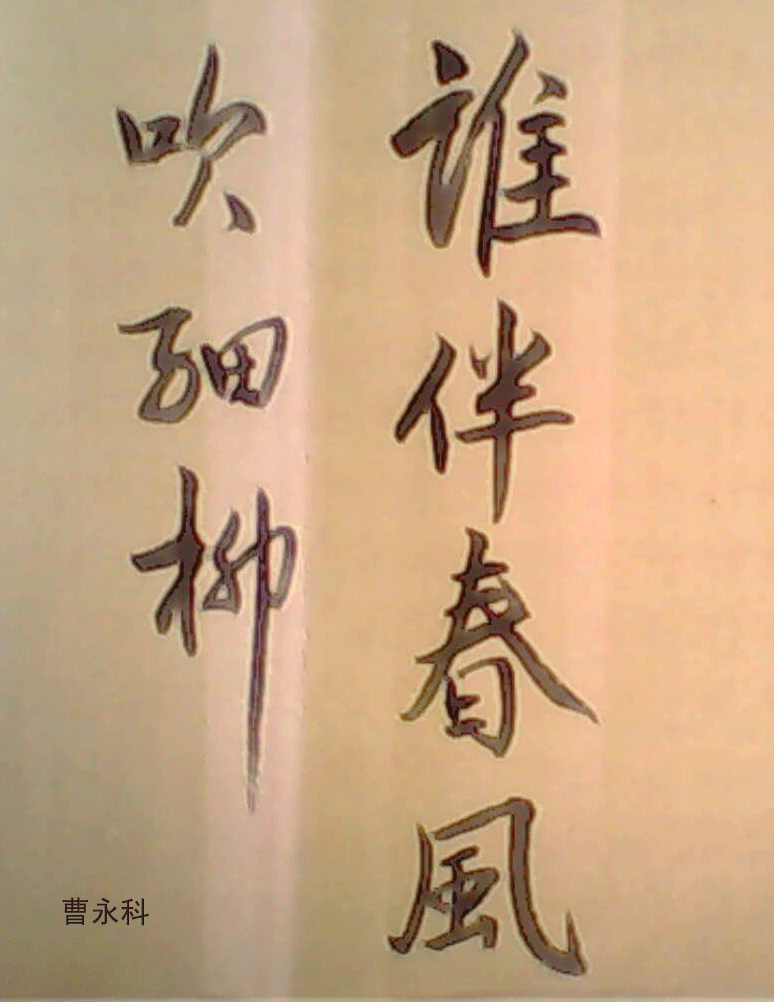 誰伴春風
吹細柳
曹永科